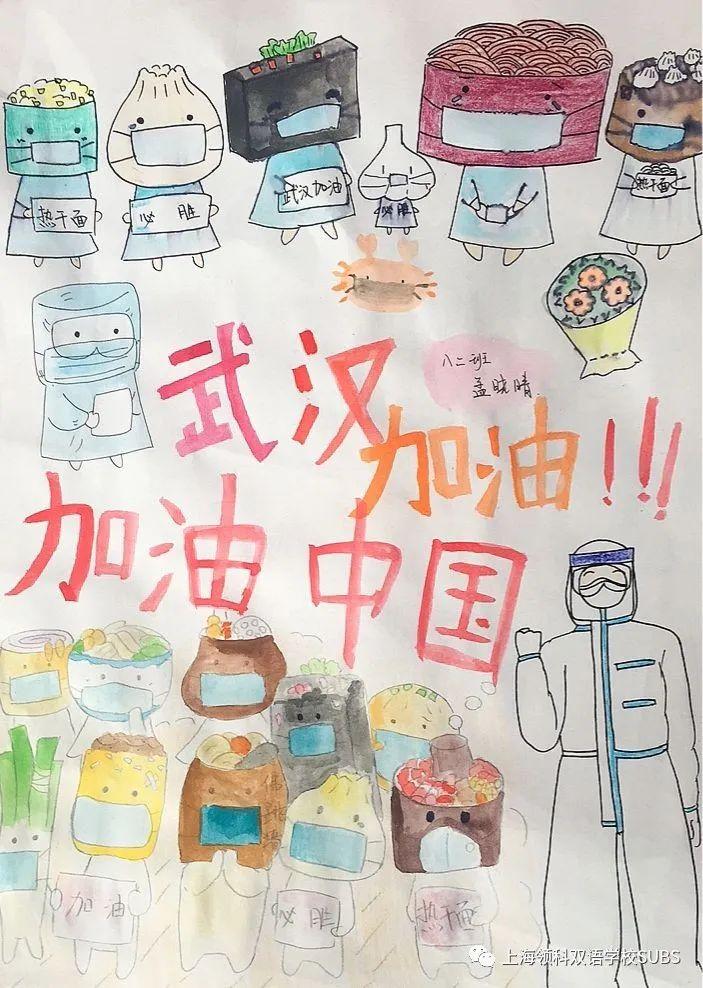 热干面
必胜
武汉加油
必胜
热干面
八二班
孟晓晴
武汉
加油!!!
加油中国
佛跳墙
加油
必胜
热干面
上海领科双语学校SUBS